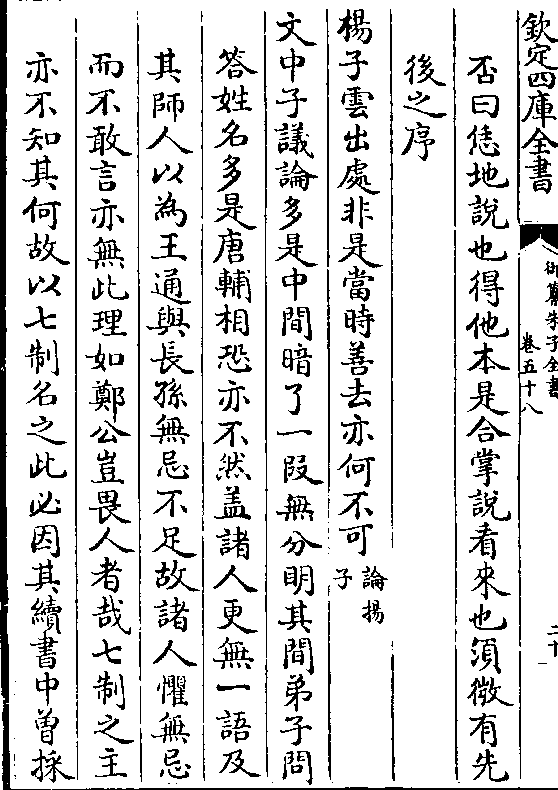 欽定四庫全書
御纂朱子全書
卷五十八
二十
否曰恁地說也得他本是合掌說看來也須微有先
後之序
楊子雲出處非是當時善去亦何不可
論揚
子
文中子議論多是中間暗了一段無分明其間弟子問
答姓名多是唐輔相恐亦不然蓋諸人更無一語及
其師人以為王通與長孫無忌不足故諸人懼無忌
而不敢言亦無此理如鄭公豈畏人者哉七制之主
亦不知其何故以七制名之此必因其續書中曾採